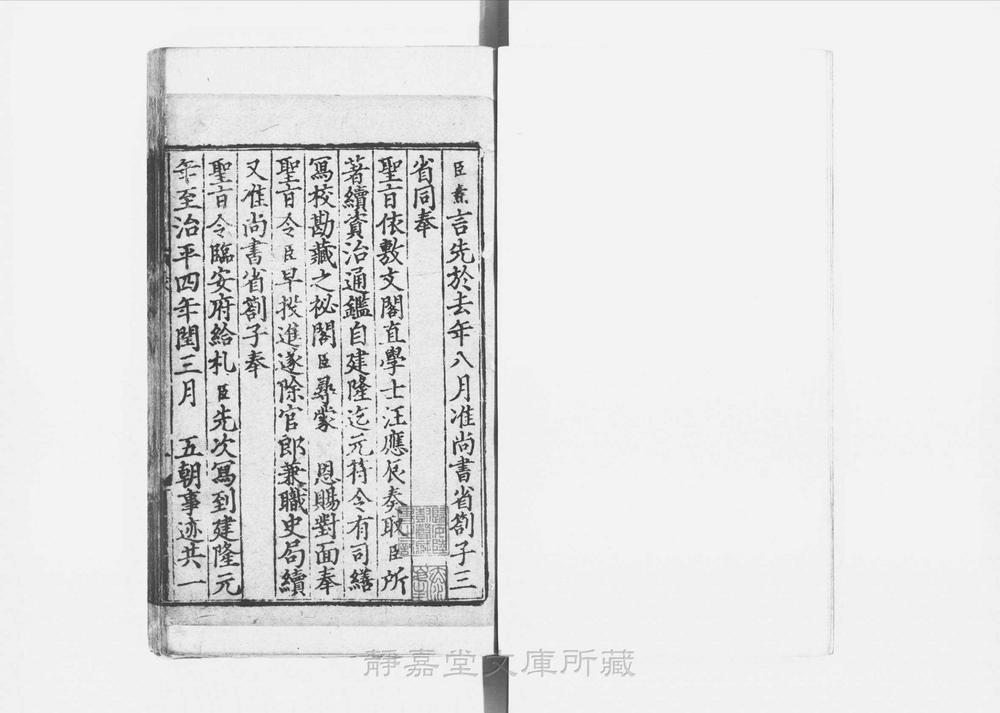 臣燾言先於去年八月准尚書省劄子三
省同奉
聖旨依敷文閣直學士汪應辰奏取臣所
著續資治通鑑自建隆迄元符令有司繕
寫校勘藏之祕閣臣尋蒙　恩賜對面奉
聖旨令臣早投進遂除官郎兼職史局續
又准尚書省劄子奉
聖旨令臨安府給札臣先次寫到建隆元
年至治平四年閏三月　五朝事迹共一
靜嘉堂文庫所藏